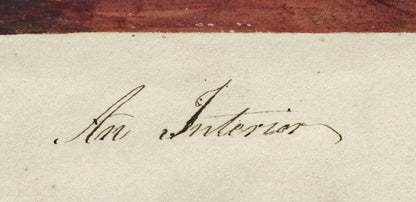 An Interior